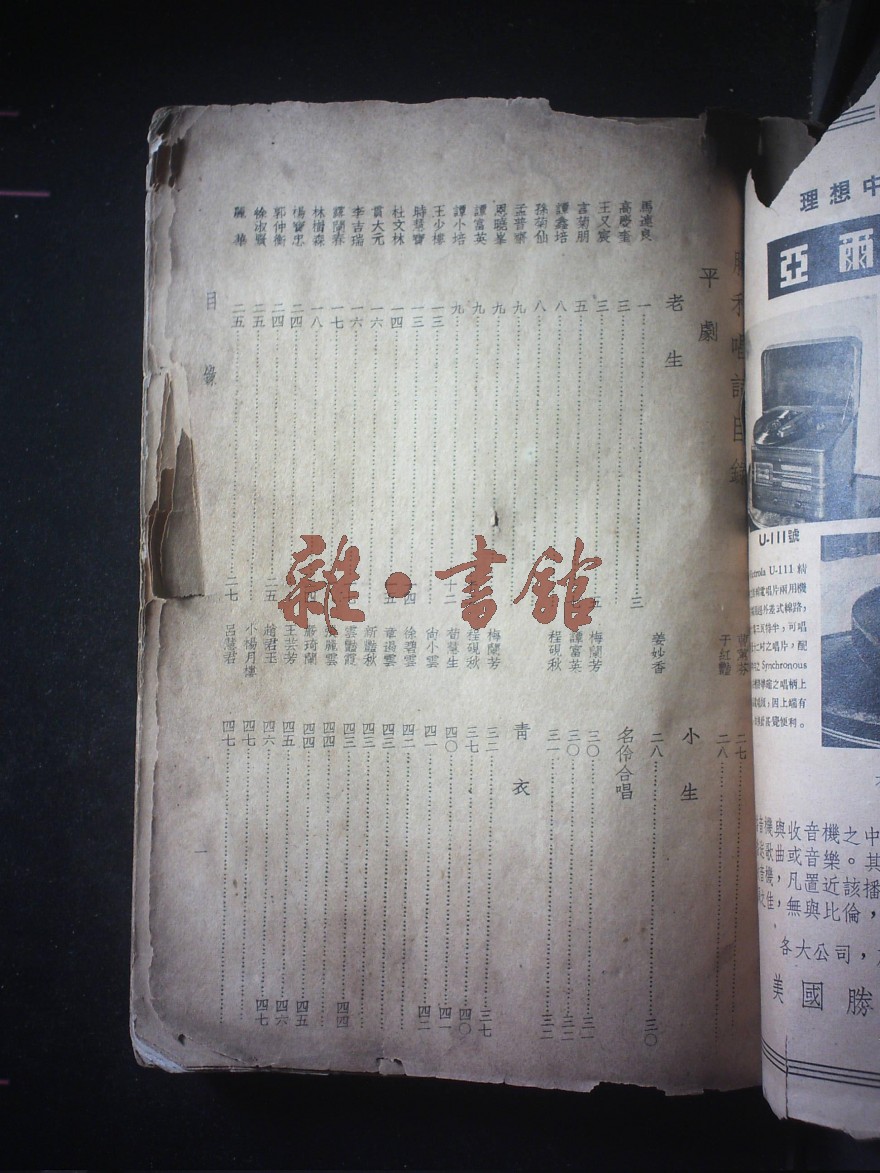 勝利唱詞目錄
平劇
老生
馬連良 一 三
高慶奎 三
王又宸 三 五
言菊朋 五
譚鑫培 八
孫菊仙 八
孟普齋 九
恩曉峯 九
譚富英 九
譚小培 九 十二
王少樓 一三
時慧寶 一三 一四
杜文林 一四 一五
貫大元 一六
李吉瑞 一六
蘇蘭春 一七
林樹森 一八
楊寶忠 二四
郭仲衡 二四 二五
徐淑賢 二五
二五 二七
目錄
二七
于紅艷 二八
小生
姜妙香 二八 三〇
名伶合唱
梅蘭芳 三〇 三一
譚富英 三〇 三二
程硯秋 三一 三二
青衣
梅蘭芳 三二 三七
程硯秋 三七 四〇
荀慧生 四〇 四一
尚小雲 四一 四二
徐碧雲 四二
章遏雲 四三
新艷秋 四三
雲艷霞 四三 四四
麗雲 四四
嚴琦蘭 四四 四五
王芸芳 四五 四六
趙君玉 四六 四七
小楊月樓 四七
呂慧君 四七
一
理想中
亞爾
U-111號
U-111 精
電唱片兩用機
過外差式線路，
三瓦特半；可唱
十二吋之唱片，配
之 Synchronous
標準磁之唱柄上
因上端有
裝覺便利。
音機與收音機之中
歌曲或音樂。其
音機，凡置近該播
之佳，無與比倫，
各大公司，
美國勝
雜·書館